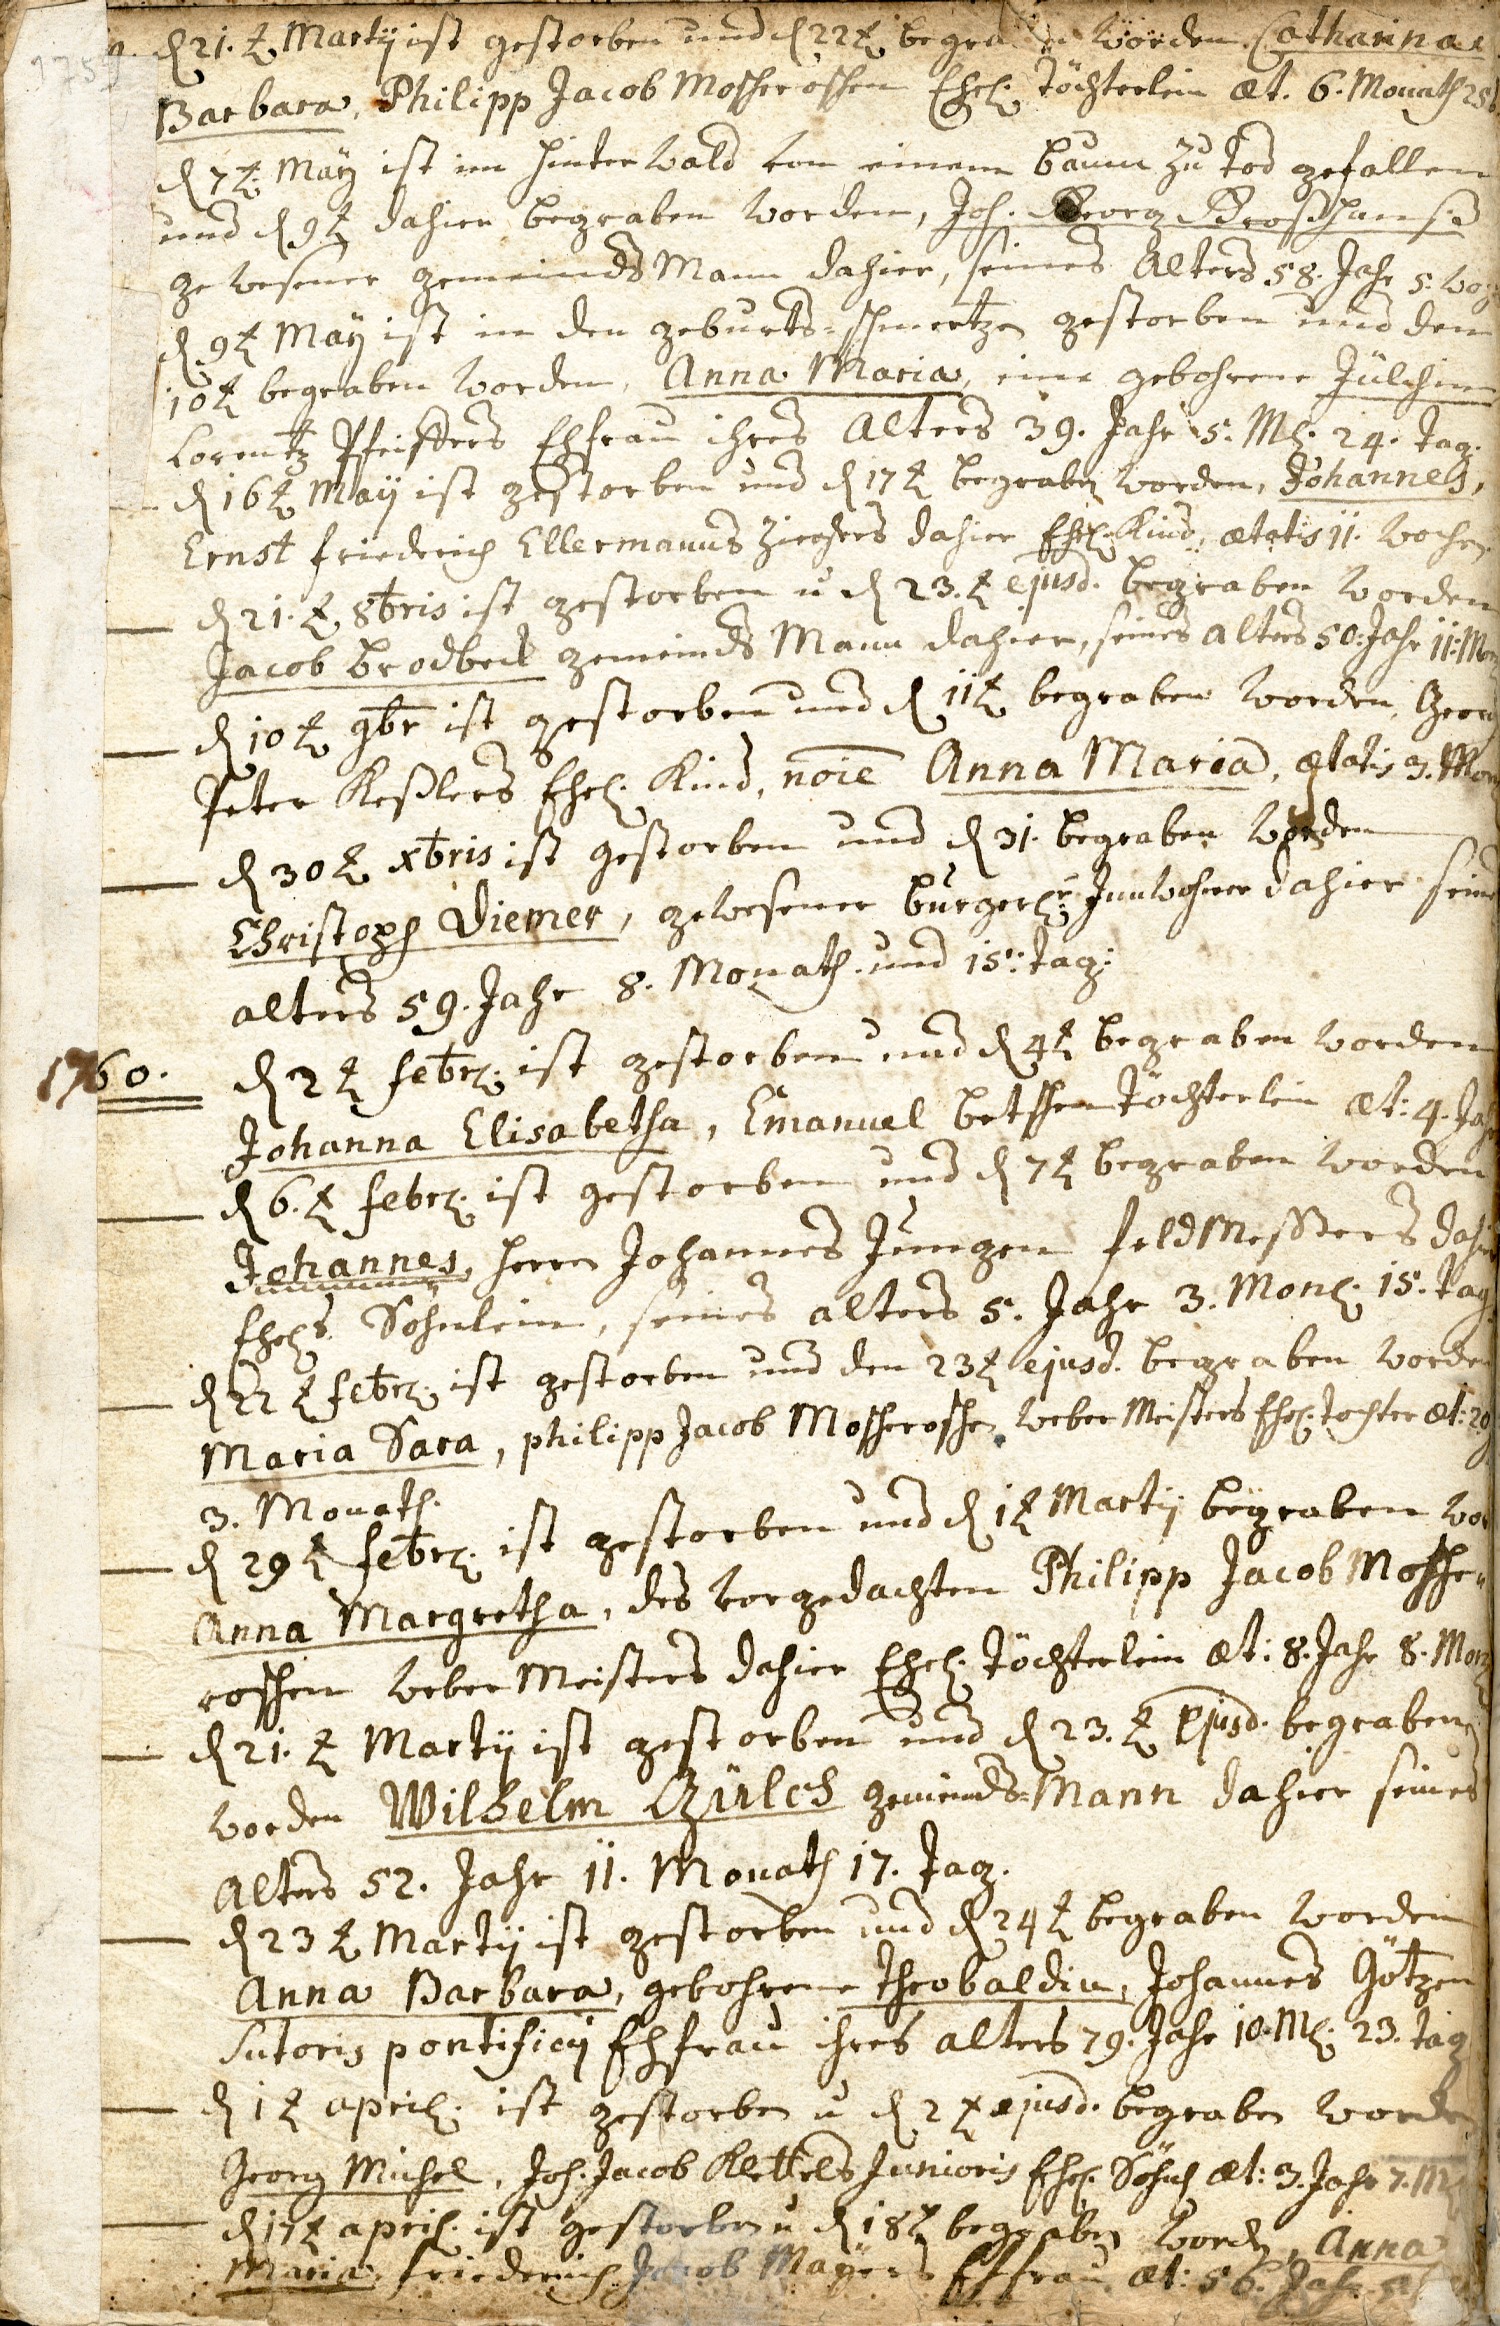 1759
d 21.t Martij ist gestorben und d 22t begraben worden Catharina
Barbara, Philipp Jacob Moscheroschen Ehel. Töchterlein æt. 6. Monath 25
d 7t. Maÿ ist im hinter Wald von einem baum zu tod gefallen
und d 9t dahier begraben worden, Joh. Georg Broßhanß
gewesener gemeinds Mann dahier, seines Alters 58. Jahr 5. Wo
d 9t Maÿ ist in den geburts=schmertzen gestorben und den
10t begraben worden, Anna Maria, eine gebohrene Jülchin
Lorentz Pfeiffers Ehfrau ihres Alters 39. Jahr 5. Mh. 24. tag.
d 16t Maÿ ist gestorben und d 17t begraben worden, Johannes,
Ernst friederich Ellermanns Zieglers dahier Ehel. Kind, ætatis 11. Wochen
d 21.t 8bris ist gestorben u d 23.t ejusd. begraben worden
Jacob brodbeck gemeinds Mann dahier, seines alters 50. Jahr 11. Mon
d 10t 9br ist gestorben und d 11t begraben worden, Georg
Peter Keßlers Ehel. Kind, noie Anna Maria, ætatis 3. Mon
d 30t xbris ist gestorben und d 31. begraben worden
Christoph Diemer, gewesener burgerl. Innwohner dahier seines
alters 59. Jahr 8. Monath und 15. tag.
1760. d 2t febr. ist gestorben und d 4t begraben worden
Johanna Elisabetha, Emanuel betschen Töchterlein æt: 4. Jahr
d 6.t febr. ist gestorben und d 7t begraben worden
Johannes, Herrn Johannes Jungen feldMessers dahier
Ehel. Söhnlein, seines alters 5. Jahr 3. Monh. 15. tag.
d 22t febr. ist gestorben und den 23t ejusd. begraben worden
Maria Sara, philipp Jacob Moscheroschen Weber Meisters Ehel. tochter æt: 20
3. Monath.
d 29t febr. ist gestorben und d 1t Martij begraben wor
Anna Margretha, des vorgedachten Philipp Jacob Mosche=
roschen Weber Meisters dahier Ehel. Töchterlein æt: 8. Jahr 8. Mon
d 21.t Martij ist gestorben und d 23.t ejusd. begraben
worden Wilhelm Gürlch gemeinds=Mann dahier seines
Alters 52. Jahr 11. Monath 17. Tag.
d 23t Martij ist gestorben und d 24t begraben worden
Anna Barbara, gebohrene Theobaldin, Johannes Götzen
Sutoris pontificij Ehfrau ihres alters 79. Jahr 10. Mh. 23. tag
d 1t april. ist gestorben u d 2t ejusd. begraben worden
Georg Michel, Joh. Jacob Klettels Junioris Ehel. Söhnl æt: 3. Jahr 7. Mh
d 17t april. ist gestorben u d 18t begraben worden, Anna
Maria, friederich Jacob Maÿers Ehfrau æt: 56. Jahr